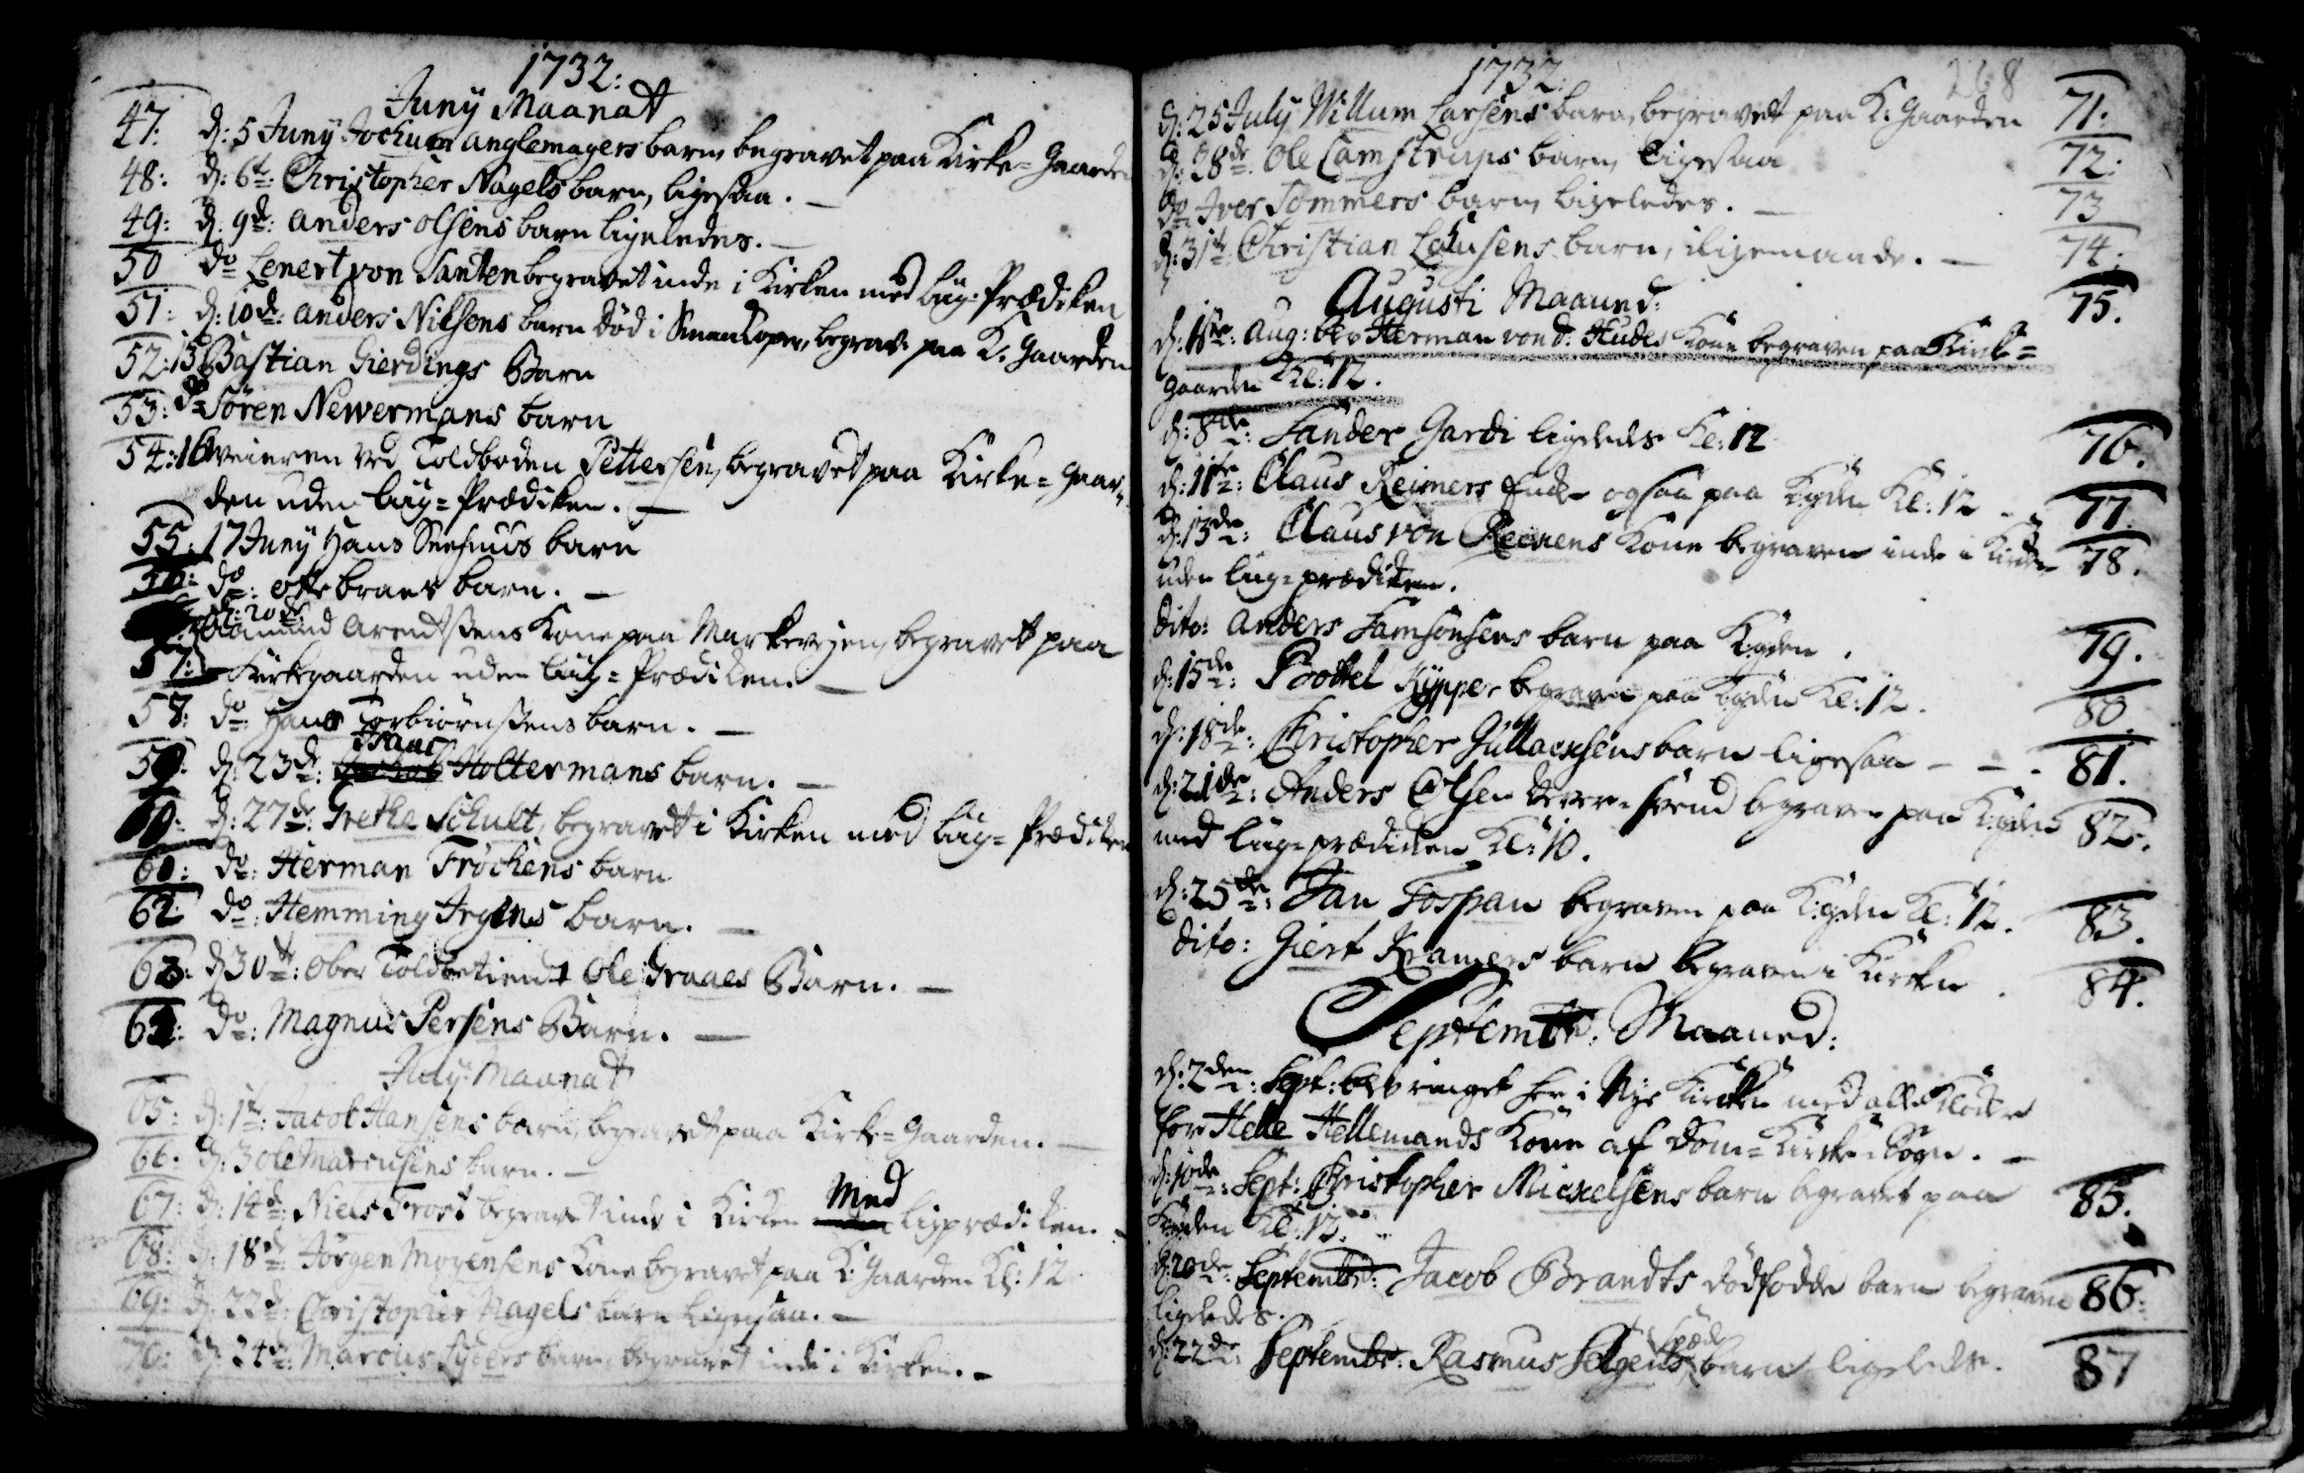 1732:
Juny Maanat
47. d: 5 Juny Jochum anglemagers barn begravet paa Kirke-Gaarden
48: d: 6t: Christopher Nagels barn, ligesaa. -
49: d: 9de: anders olsens barn ligeledes. -
50 do Lenert von Santen begravet inde i Kirken med Liig-Prædiken
51: d: 10de: anders Nilsens barn død i Smaakoper, begrav: paa K: Gaarden
52: 13 Bastian Gierdings Barn
53: do Søren Newermans barn
54: 16 veieren ved Toldboden Pettersen, begravet paa Kirke-Gaar-
den uden Liig-Prædiken. -
55: 17 Juny Hans barn
56: do: otte braes barn. -
d: 20de:
Aamund Arendtsens Kone paa Markeveyen, begravet paa
57: Kirkgaarden uden Liig-Prædiken. -
58: do: Hans Torbiørnsens barn. -
59: d: 23de: Isaac Holtermans barn. -
60: d: 27de: Grethe Schult, begravet i Kirken med Liig-Prædiken
61: do: Herman Frøchens barn
62 do: Hemming Irgens barn. -
63: d: 30te: Ober Toldbetient Ole Graaes Barn. -
64: do: Magnus Persens Barn. -
July Maanat
65: d: 1te: Jacob Hansens barn, begravet paa Kirke-Gaarden. -
66: d: 3 ole Marcusens barn. -
67: d: 14de: Niels Frost begravet inde i Kirken Med ligprædiken. -
68: d: 18de: Jørgen Mogensens Kone begravet paa K: Gaarden Kl: 12
69: d: 22de: Christopher Nagels barn ligesaa. -
70: d: 24de: Marcus Syders barn, begravet inde i Kirken. -
1732: 268
d: 25 July Willum Larsens barn, begravet paa K: Gaarden 71.
d: 28de. Ole Camstrups barn, ligesaa 72:
do Iver Sommers barn ligeledes. - 73
d: 31te Christian barn, iligemaade. - 74.
Augusti Maaned:
d: 1ste: Aug: blev Herman von d: Hudes Kone begraven paa Kirke- 75.
gaarden Kl: 12.
d: 8de: Sander Gardi ligeleds Kl: 12 76.
d: 11te: Claus Reimers Enke ogsaa paa Kgden Kl: 12 - - 77.
d: 13de: Claus von Reenens Kone begraven inde i Kirken 78.
uden Liig-prædiken.
dito: Anders Samsonsens barn paa Kgden. 79.
d: 15de: Poottel Kypper begraven paa Kgden Kl: 12. 80.
d: 18de: Christopher Gullacksens barn ligesaa - - - 81.
d: 21de: Anders Olsen begraven paa Kgden 82.
med Liig-prædiken Kl: 10.
d: 25de: Jan Tospan begraven paa K:gden Kl: 12. 83.
dito: Giert Kramers barn begraven i Kirken. 84.
Septembr: Maaned:
d: 2den: Sept: blev ringet her i Nye Kirken med alle Klokker
for Helle Hellemands Kone af Dom-Kirke-Sogn. -
d: 10de: Sept: Christopher Mickelsens barn begravet paa 85.
Kgden Kl: 12. -
d: 20de: Septembr: Jacob Brandts dødfødde barn begraven 86:
ligeledes.
d: 22de: Septembr: Rasmus Helgens spæde barn ligeleds. 87